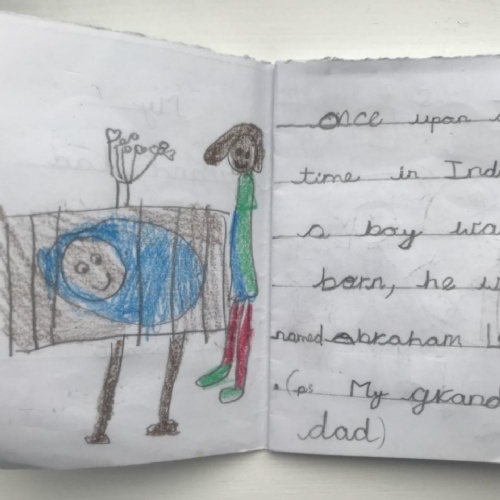 once upon a
time in Indi
a boy wa
born, he w
named abraham L
(ps My grand
dad)